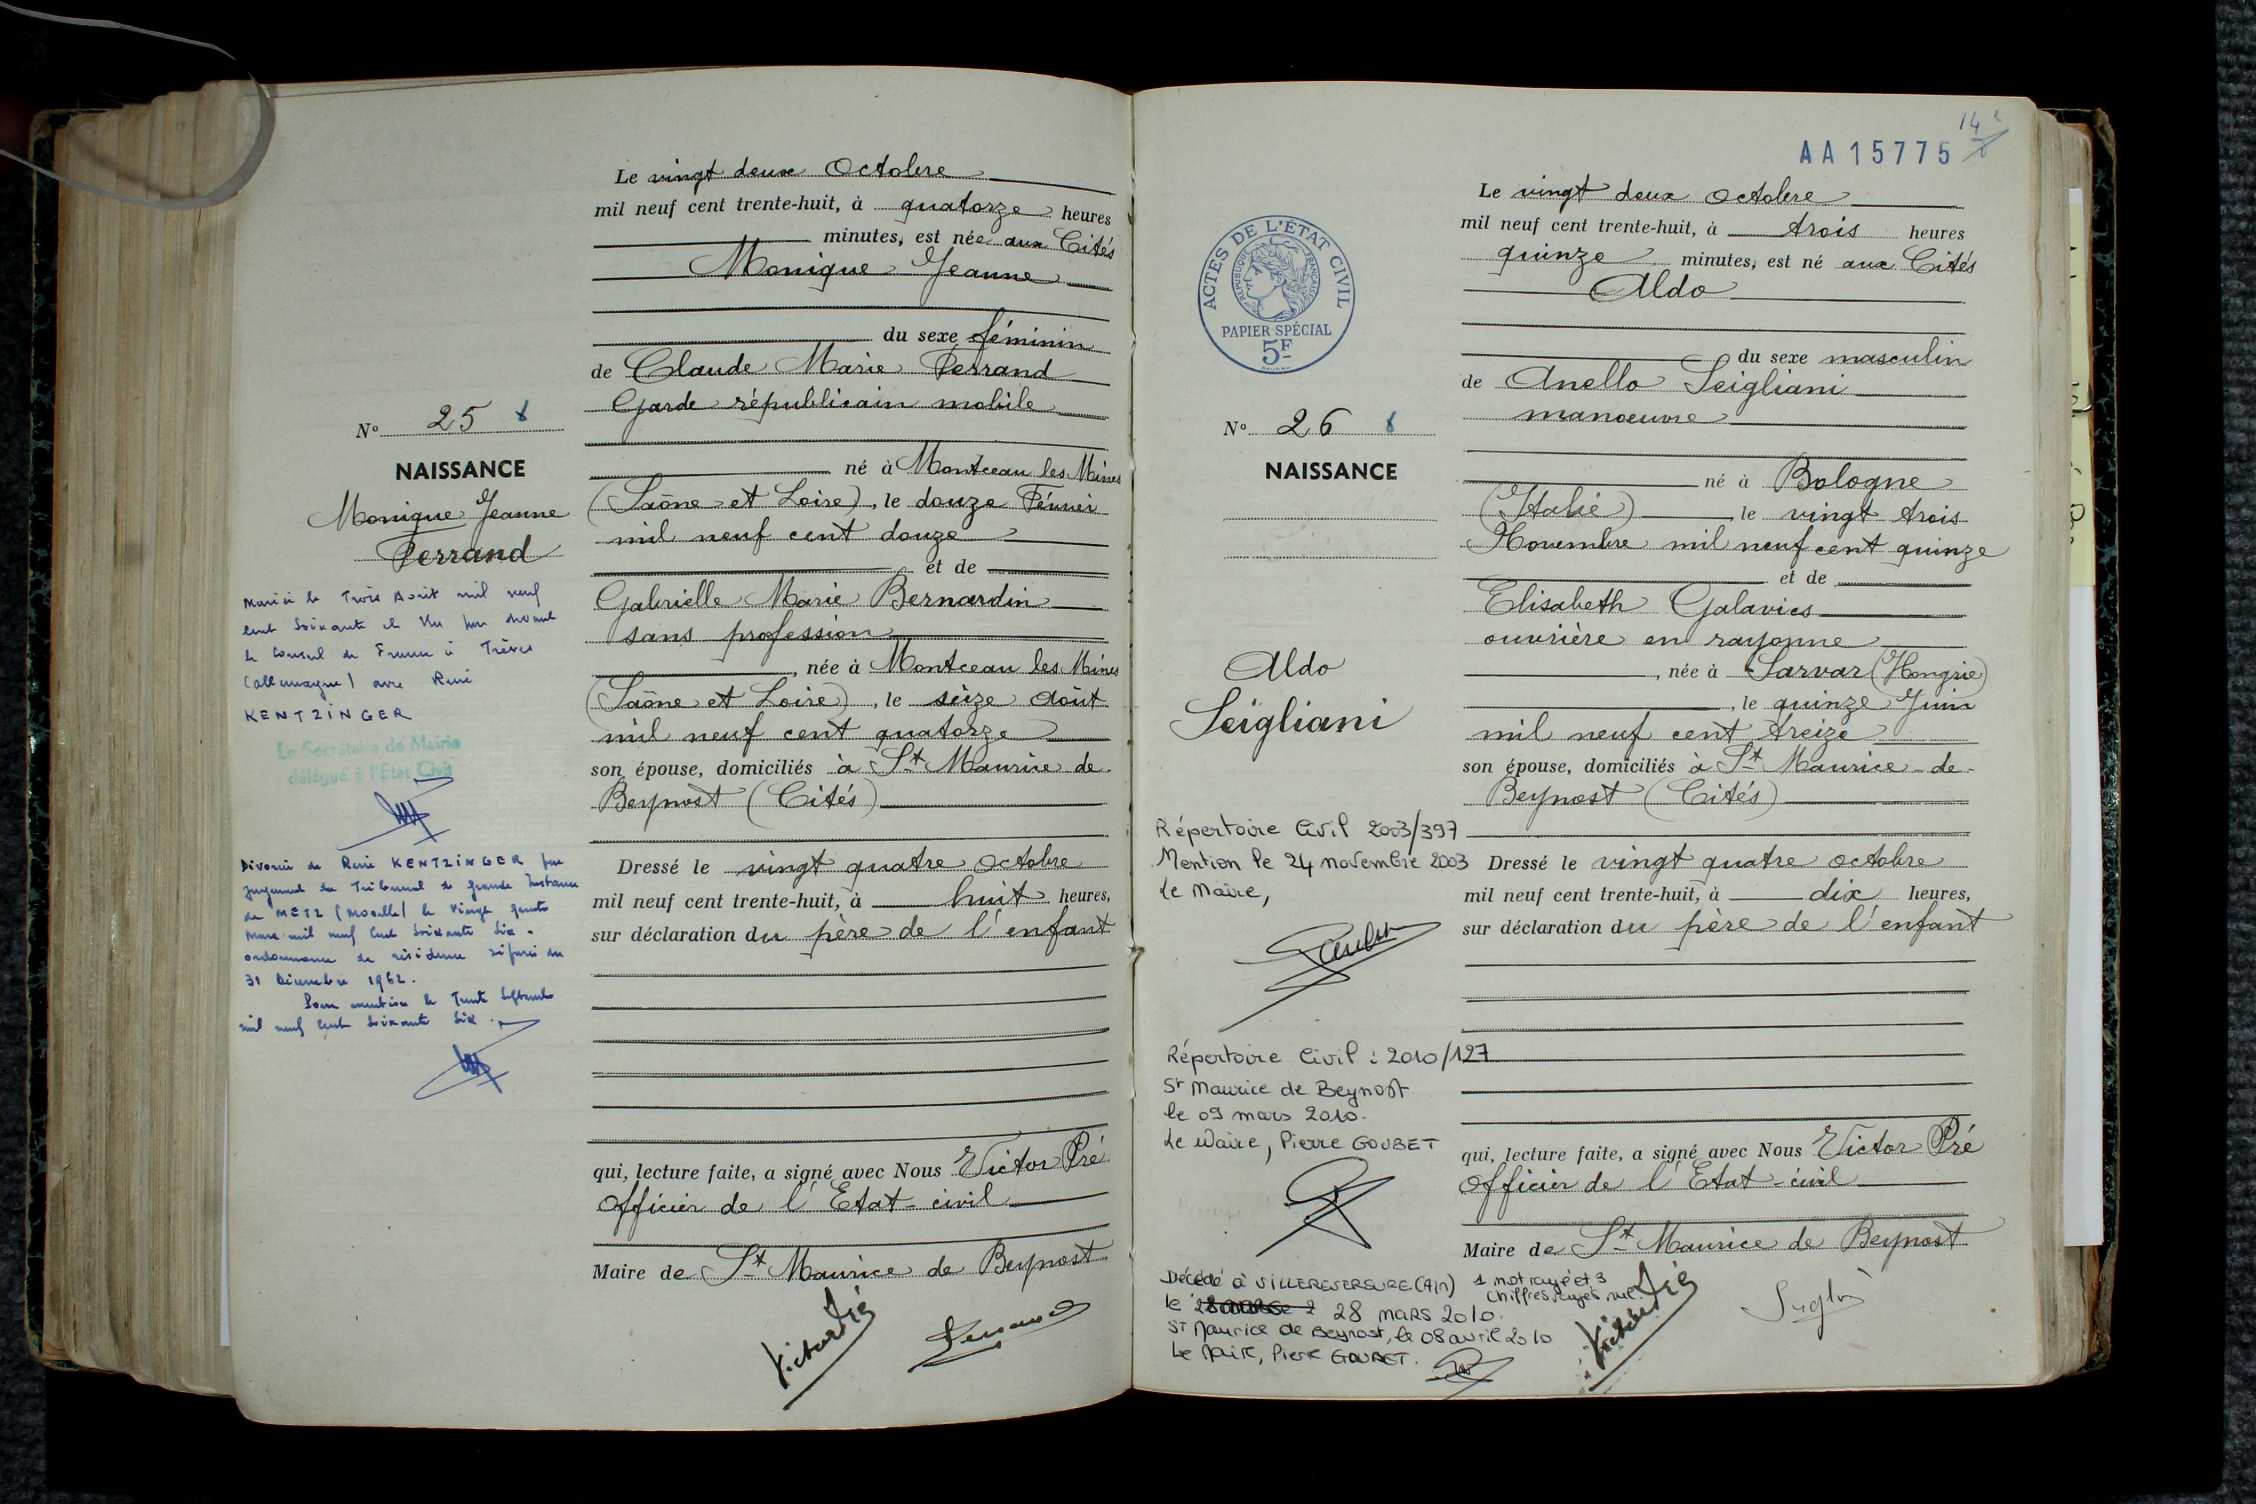 Le vingt deux Octobre
mil neuf cent trente-huit, à quatorze heures
minutes, est née aux Cités
Monique Jeanne
du sexe féminin
de Claude Marie Perrand
Garde républicain mobile
né à Montceau les Mines
(Saône et Loire), le douze Février
mil neuf cent douze
et de
Gabrielle Marie Bernardin
sans profession
, née à Montceau les Mines
(Saône et Loire), le seize Août
mil neuf cent quatorze
son épouse, domiciliés à St Maurice de
Beynost (Cités)
Dressé le vingt quatre Octobre
mil neuf cent trente-huit, à huit heures,
sur déclaration du père de l'enfant
qui, lecture faite, a signé avec Nous Victor Pré
Officier de l'Etat-civil
Maire de St Maurice de Beynost
Victor Pré
Nº 25
NAISSANCE
Monique Jeanne
Perrand
Mariée le Trois Août mil neuf
cent soixante et un par devant
le Consul de France à Trèves
(Allemagne) avec René
KENTZINGER
Le Secrétaire de Mairie
délégué à l'Etat Civil
Divorcée de René KENTZINGER par
jugement du Tribunal de grande Instance
de METZ (Moselle) le vingt quatre
mars mil neuf cent soixante six.
ordonnance de résidence séparée du
31 Décembre 1962.
Pour mention le Trente Septembre
mil neuf cent soixante six.
AA15775
14
Le vingt deux Octobre
mil neuf cent trente-huit, à trois heures
quinze minutes, est né aux Cités
Aldo
du sexe masculin
de Anello Seigliani
manoeuvre
né à Bologne
(Italie), le vingt trois
Novembre mil neuf cent quinze
et de
Elisabeth Galavics
ouvrière en rayonne
, née à Sarvar (Hongrie)
, le quinze Juin
mil neuf cent treize
son épouse, domiciliés à St Maurice-de-
Beynost (Cités)
Dressé le vingt quatre octobre
mil neuf cent trente-huit, à dix heures,
sur déclaration du père de l'enfant
qui, lecture faite, a signé avec Nous Victor Pré
Officier de l'Etat-civil
Maire de St Maurice de Beynost
Victor Pré
ACTES DE L'ÉTAT CIVIL
RÉPUBLIQUE FRANÇAISE
PAPIER SPÉCIAL
5F
Nº 26
NAISSANCE
Aldo
Seigliani
Répertoire Civil 2003/397
Mention le 24 novembre 2003
Le Maire,
Répertoire Civil : 2010/127
St Maurice de Beynost
le 09 mars 2010.
Le Maire, Pierre GOUBET
Décédé à VILLEREVERSURE (Ain)
le 28 MARS 2010.
1 mot rayé et 3
chiffres rayés nul.
St Maurice de Beynost, le 08 avril 2010
Le Maire, Pierre GOUBET.